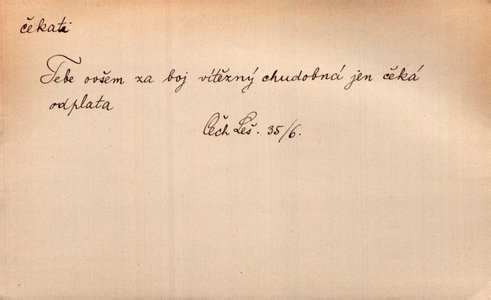 čekati
Tebe ovšem za boj vítězný chudobná jen čeká
odplata
Čech Leš. 35/6.